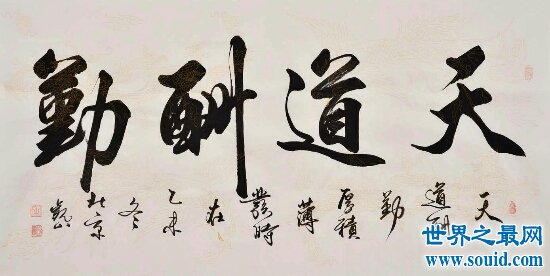 天道酬勤
天道酬勤厚積薄發時在乙未冬北京
世界之最网
www.souid.com